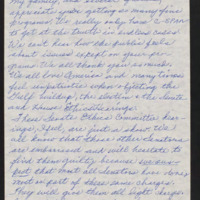 My family, and several friends
appreciate your getting so many fine
programs. We really only have C-SPAN
to get at the truth in endless cases
We can't hear how the public feels
about issues except on your pro-
grams. We all thank you so much.
We all love America and many times
feel unpatriotic when
the Senate
and House Ethics
These Senate Ethics Committee hear-
ings, Sped, are just a show. We
all know that these other Senators
are embarrassed and will hesitate to
find them guilty because
that most all Senators have done
most or part of these same charges.
They will give them all light charges